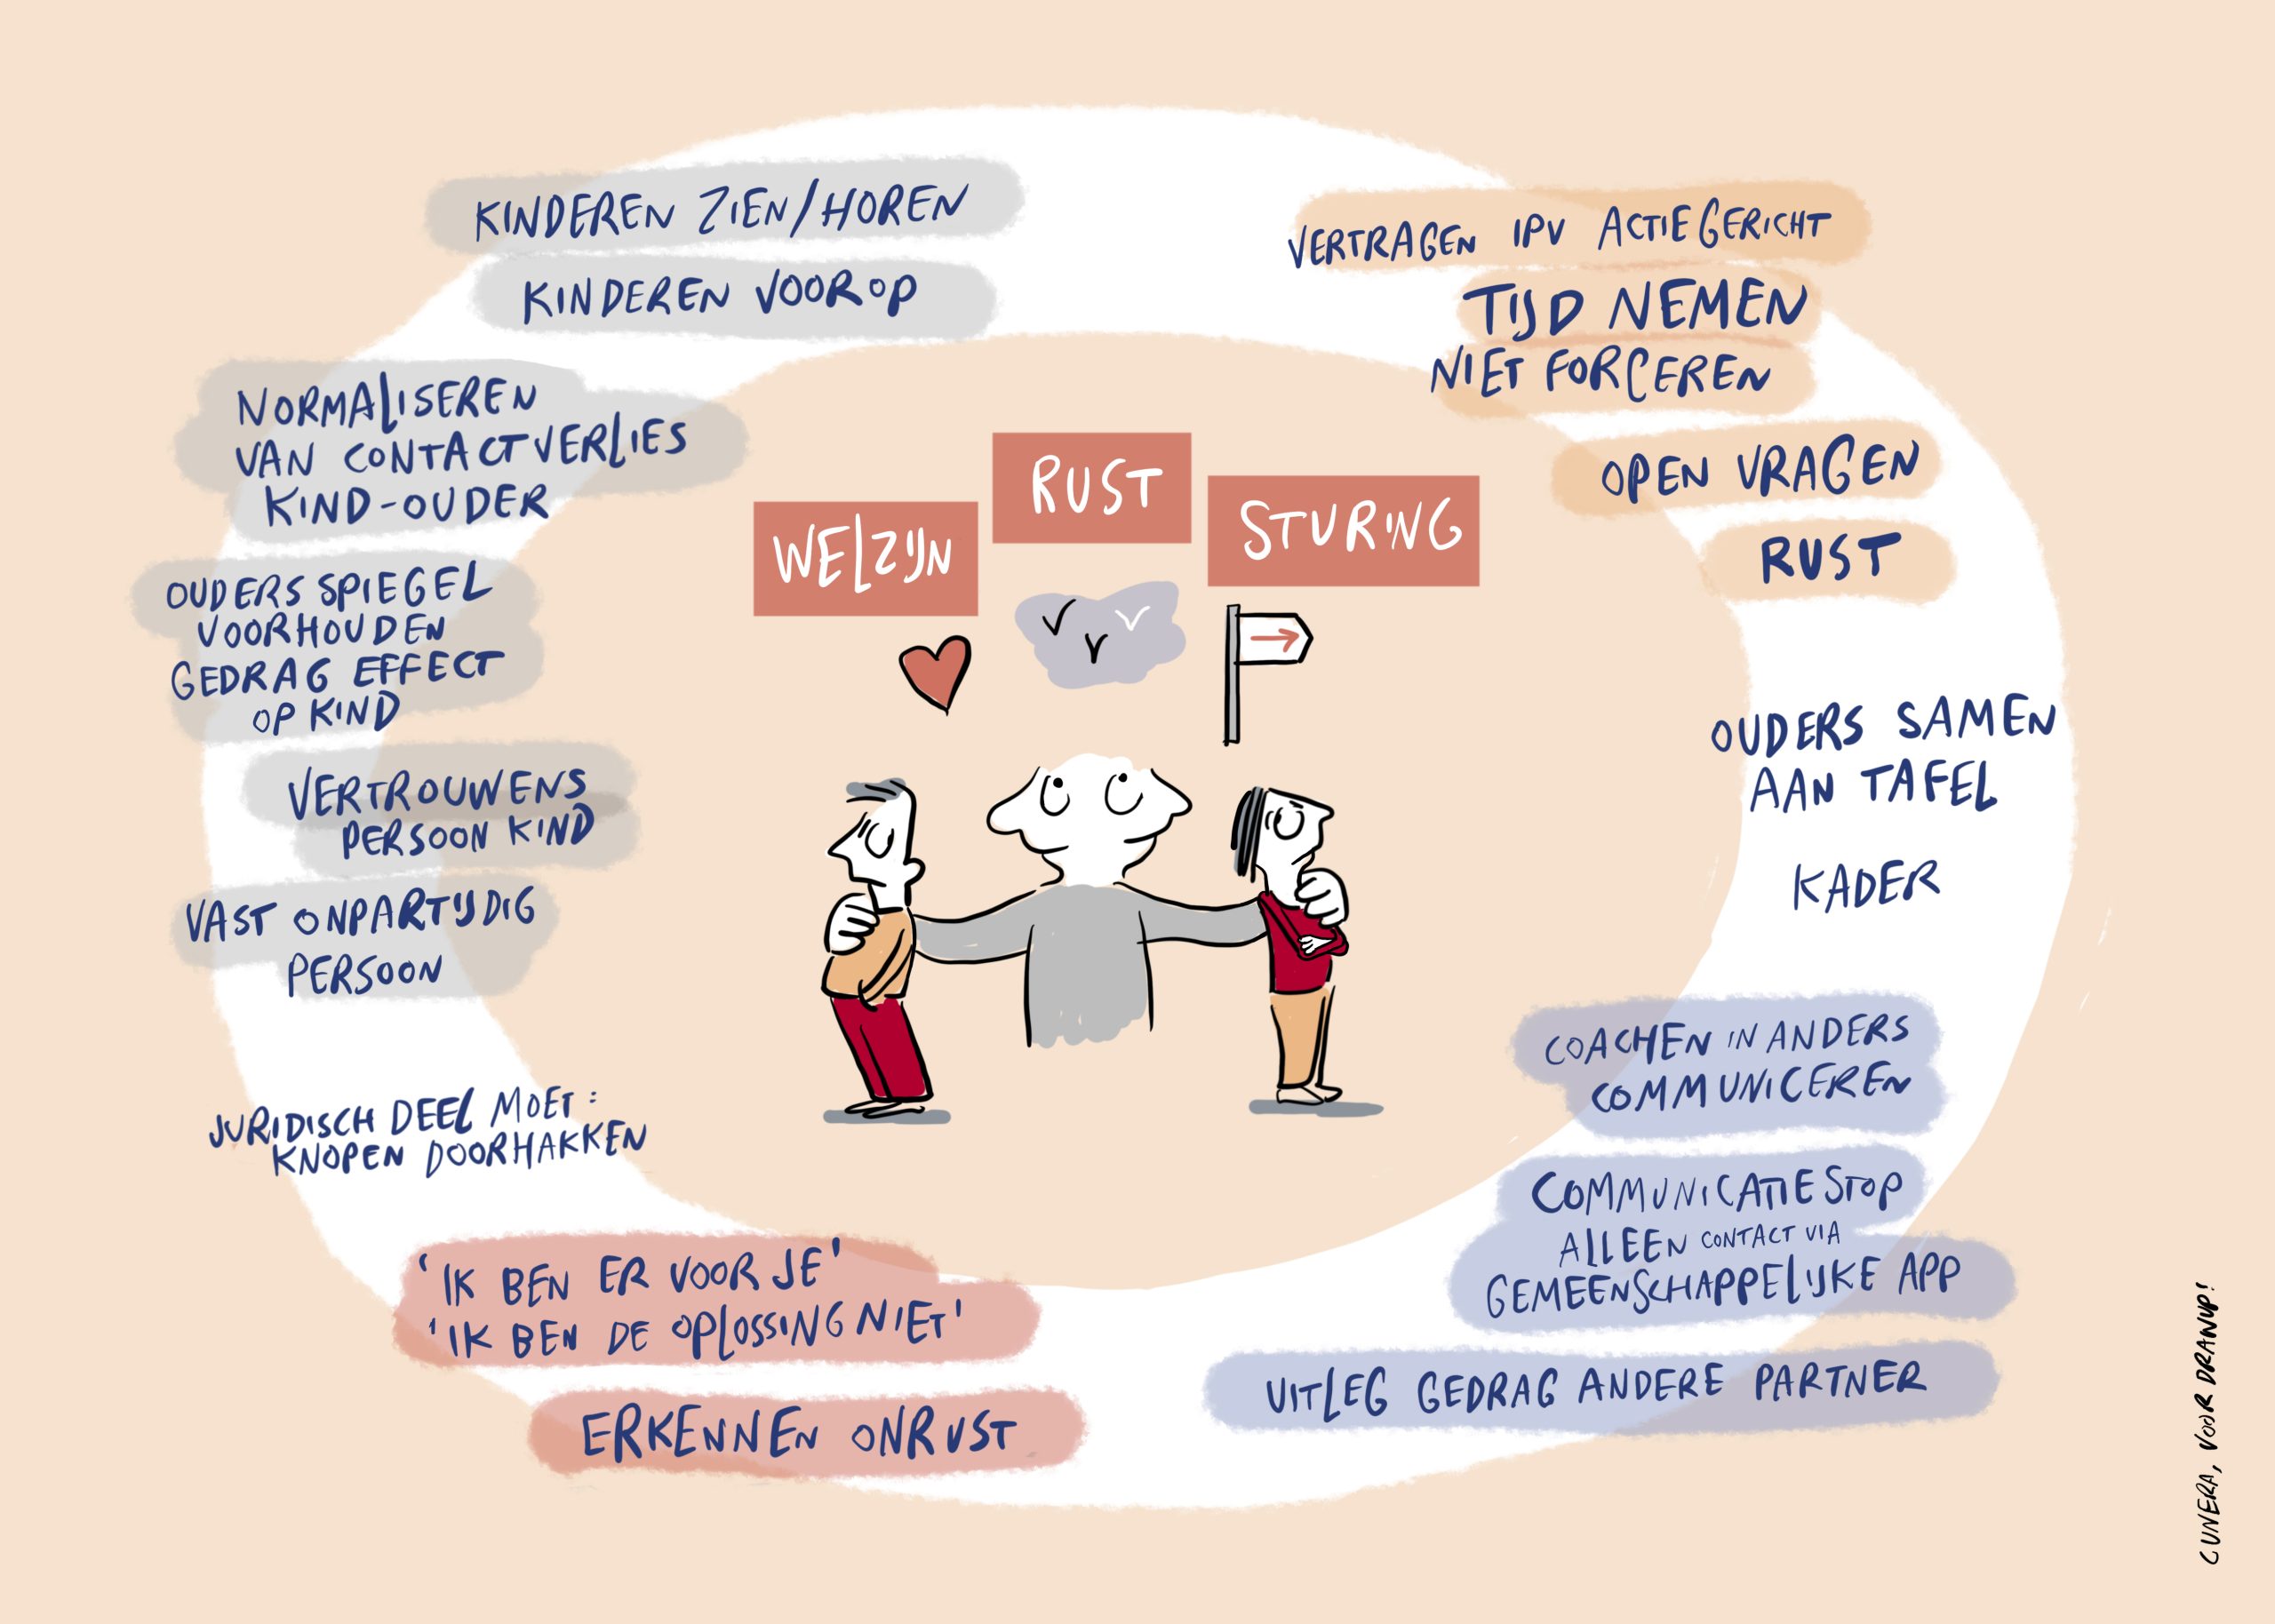 KINDEREN ZIEN/HOREN
KINDEREN VOOROP
NORMALISEREN
VAN CONTACTVERLIES
KIND-OUDER
OUDERS SPIEGEL
VOORHOUDEN
GEDRAG EFFECT
OP KIND
VERTROUWENS
PERSOON KIND
VAST ONPARTIJDIG
PERSOON
JURIDISCH DEEL MOET:
KNOPEN DOORHAKKEN
'IK BEN ER VOOR JE'
'IK BEN DE OPLOSSING NIET'
ERKENNEN ONRUST
WELZIJN
RUST
STURING
VERTRAGEN IPV ACTIEGERICHT
TIJD NEMEN
NIET FORCEREN
OPEN VRAGEN
RUST
OUDERS SAMEN
AAN TAFEL
KADER
COACHEN IN ANDERS
COMMUNICEREN
COMMUNICATIESTOP
ALLEEN CONTACT VIA
GEMEENSCHAPPELIJKE APP
UITLEG GEDRAG ANDERE PARTNER
CUNERA, VOOR DRAWUP!